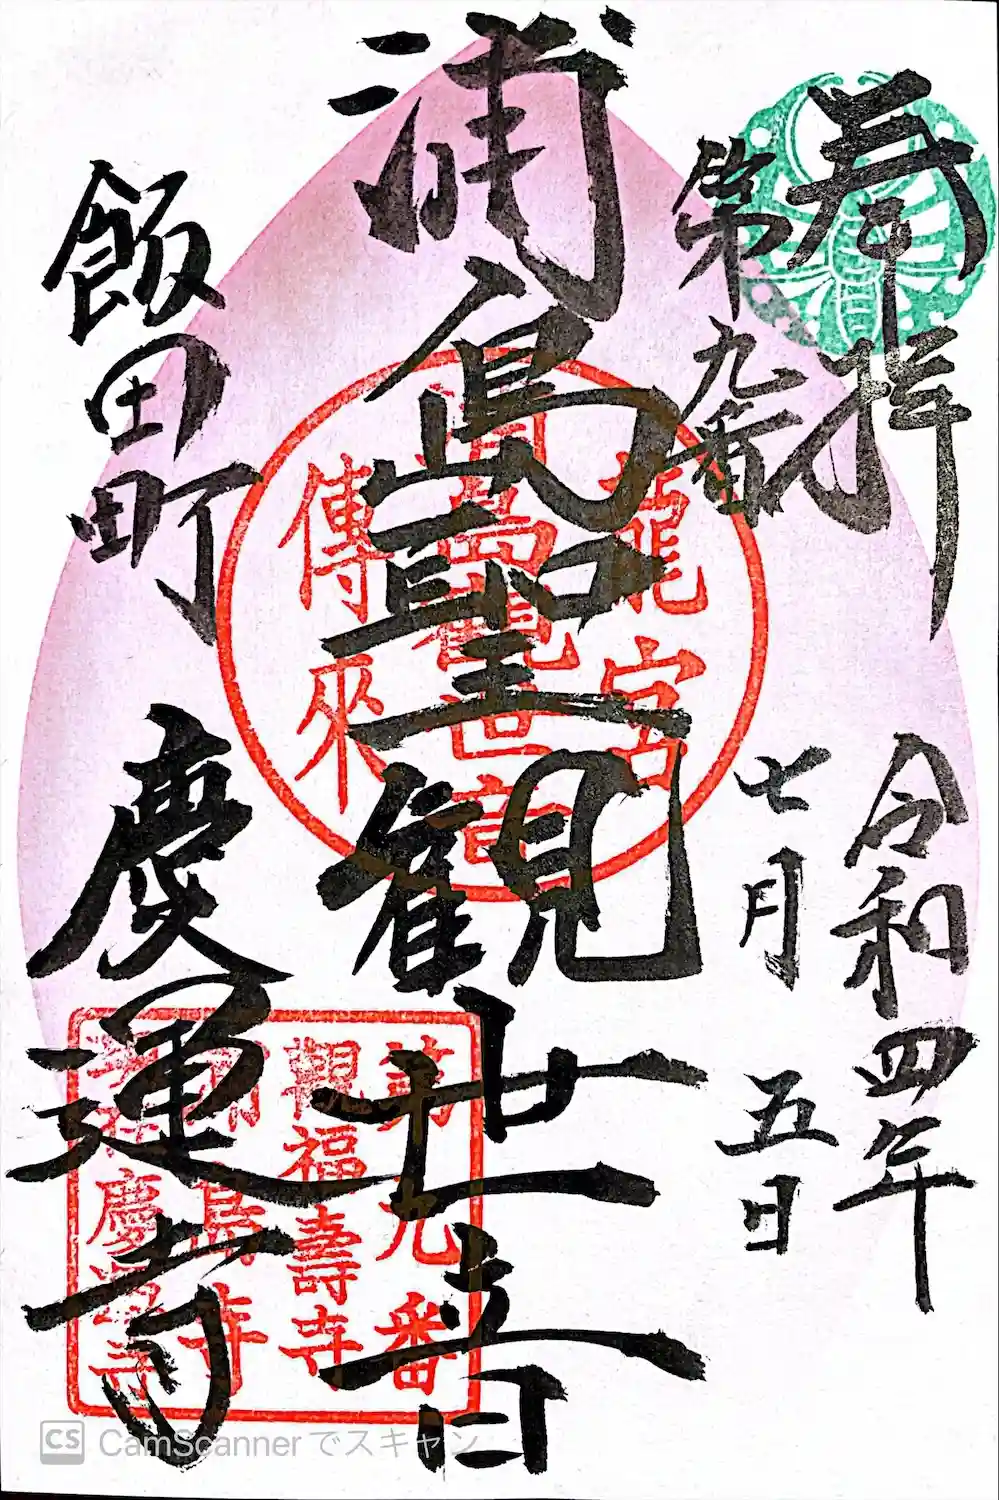 奉拝
第九番
令和四年
七月五日
浦島聖観世音
飯田町
慶運寺
龍宮
傳來
第九番
觀福壽寺
CS CamScannerでスキャン